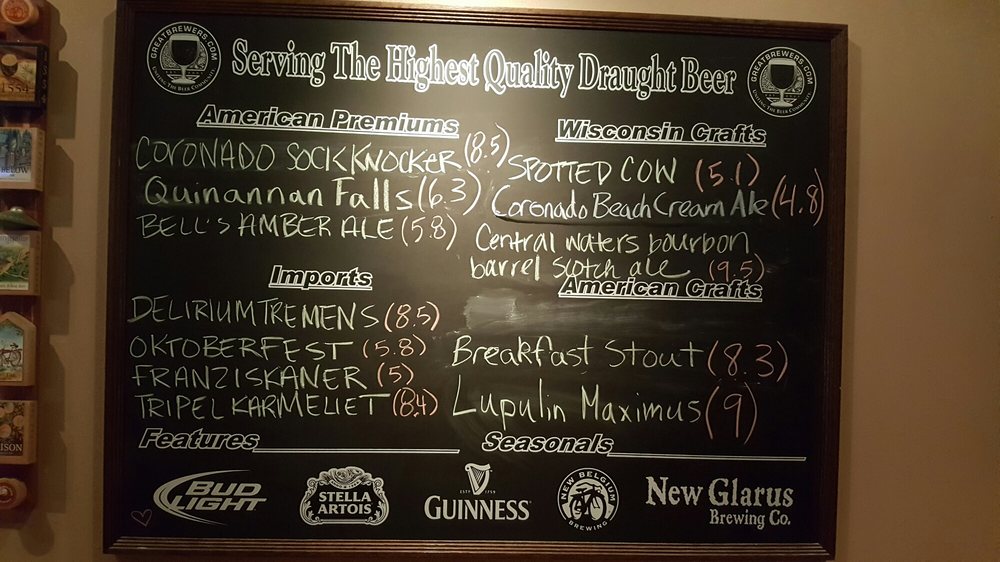 GREATBREWERS.COM
SERVING THE BEER COMMUNITY
Serving The Highest Quality Draught Beer
GREATBREWERS.COM
SERVING THE BEER COMMUNITY
American Premiums
CORONADO SOCKKNOCKER (8.5)
Quinannan Falls (6.3)
BELL'S AMBER ALE (5.8)
Wisconsin Crafts
SPOTTED COW (5.1)
Coronado Beach Cream Ale (4.8)
Central waters bourbon
barrel scotch ale (9.5)
Imports
DELIRIUM TREMENS (8.5)
OKTOBERFEST (5.8)
FRANZISKANER (5)
TRIPEL KARMELIET (8.4)
American Crafts
Breakfast Stout (8.3)
Lupulin Maximus (9)
Features
Seasonals
BUD
LIGHT
STELLA
ARTOIS
ESTD 1759
GUINNESS
NEW BELGIUM
BREWING
New Glarus
Brewing Co.
1554